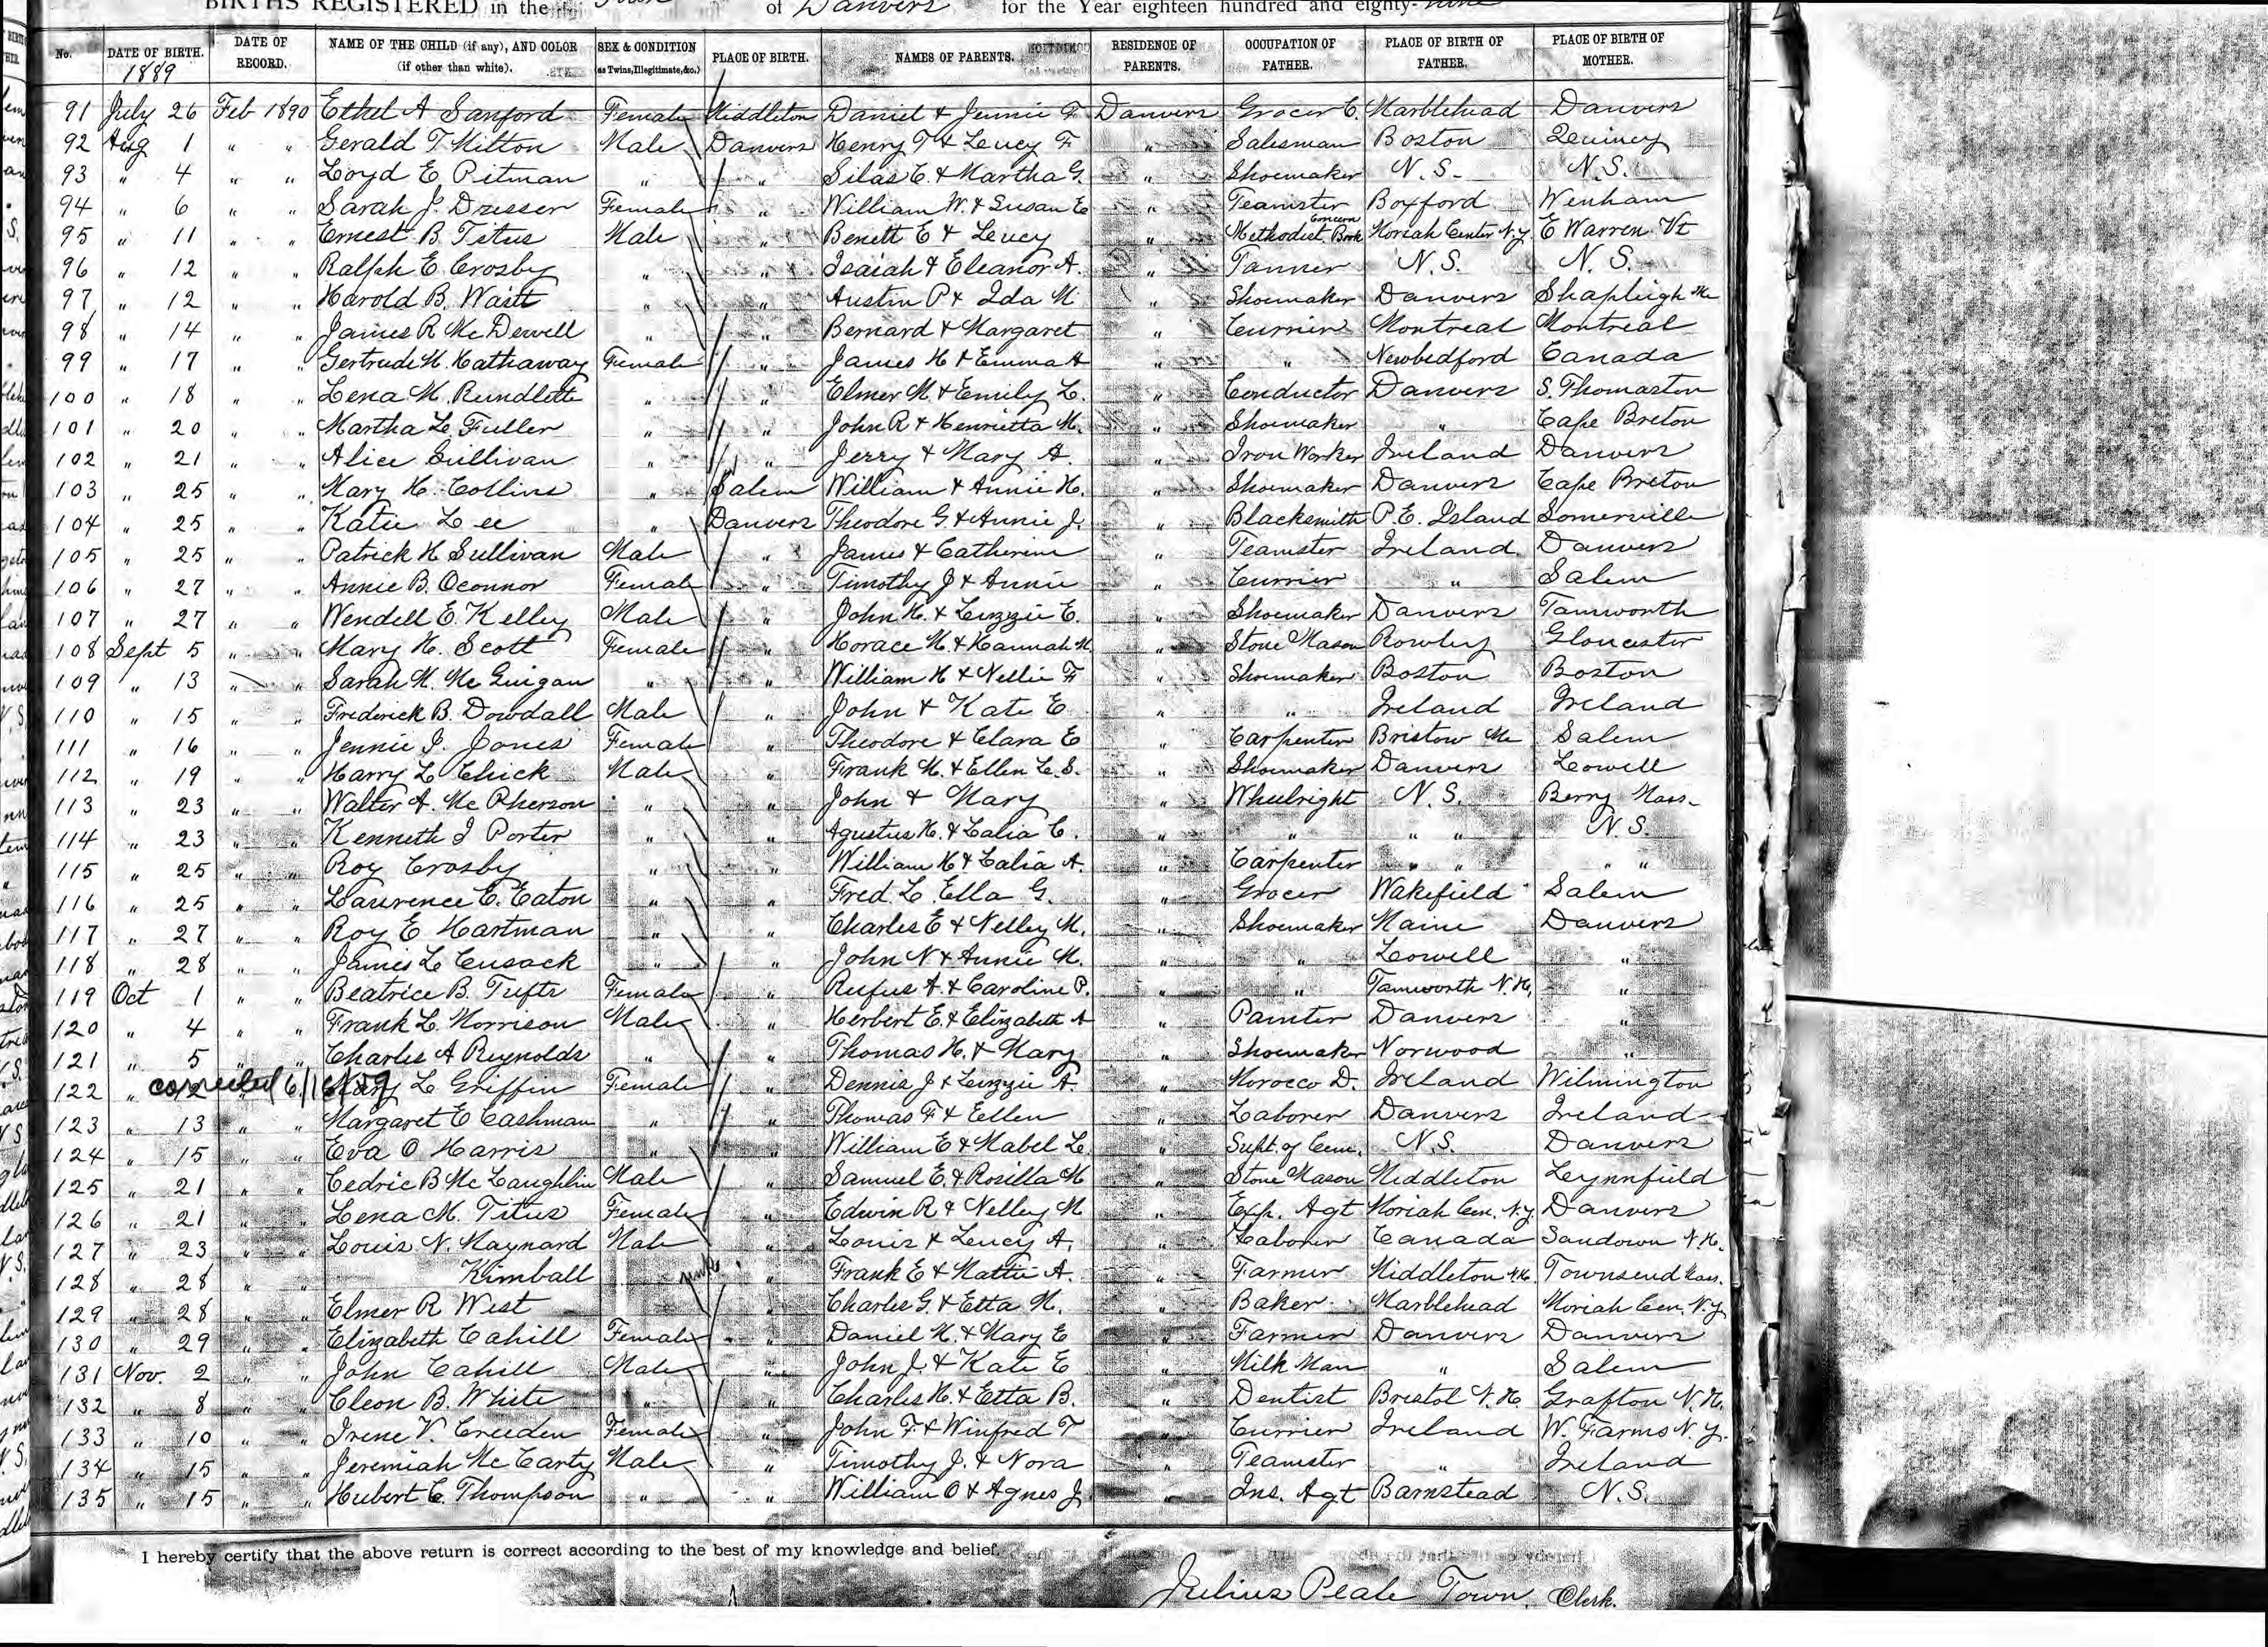 BIRTHS REGISTERED in the Town of Danvers for the Year eighteen hundred and eighty-nine
No. DATE OF BIRTH. 1889 DATE OF RECORD. NAME OF THE CHILD (if any), AND COLOR (if other than white). SEX & CONDITION (as Twins, Illegitimate, &c.) PLACE OF BIRTH. NAMES OF PARENTS. RESIDENCE OF PARENTS. OCCUPATION OF FATHER. PLACE OF BIRTH OF FATHER. PLACE OF BIRTH OF MOTHER.
91 July 26 Feb 1890 Ethel A Sanford Female Middleton Daniel & Jennie F Danvers Grocer C. Marblehead Danvers
92 Aug 1 " " Gerald T Hilton Male Danvers Henry T & Lucy F " Salesman Boston Quincy
93 " 4 " " Loyd E Pitman " " Silas C. & Martha G. " Shoemaker N.S. N.S.
94 " 6 " " Sarah J. Dresser Female " William W. & Susan E " Teamster Boxford Wenham
95 " 11 " " Ernest B Titus Male " Benett E & Lucy " Methodist Book Concern Moriah Center N.Y. E Warren Vt
96 " 12 " " Ralph E Crosby " " Isaiah & Eleanor A. " Tanner N.S. N.S.
97 " 12 " " Harold B. Waitt " " Austin P & Ida M " Shoemaker Danvers Shapleigh Me
98 " 14 " " James R McDewell " " Bernard & Margaret " Currier Montreal Montreal
99 " 17 " " Gertrude H. Hathaway Female " James H & Emma A " " Newbedford Canada
100 " 18 " " Lena M. Rundlette " " Elmer M. & Emily L. " Conductor Danvers S. Thomaston
101 " 20 " " Martha L. Fuller " " John R & Henrietta M. " Shoemaker " Cape Breton
102 " 21 " " Alice Sullivan " " Jerry & Mary A. " Iron Worker Ireland Danvers
103 " 25 " " Mary H. Collins " Salem William & Annie H. " Shoemaker Danvers Cape Breton
104 " 25 " " Katie Lee " Danvers Theodore G. & Annie J. " Blacksmith P.E. Island Somerville
105 " 25 " " Patrick H Sullivan Male " James & Catherine " Teamster Ireland Danvers
106 " 27 " " Annie B. Oconnor Female " Timothy J & Annie " Currier " Salem
107 " 27 " " Wendell E. Kelley Male " John H. & Lizzie E. " Shoemaker Danvers Tamworth
108 Sept 5 " " Mary H. Scott Female " Horace M. & Hannah M. " Stone Mason Rowley Gloucester
109 " 13 " " Sarah M. McGuigan " " William H & Nellie F " Shoemaker Boston Boston
110 " 15 " " Frederick B. Dowdall Male " John & Kate E " " Ireland Ireland
111 " 16 " " Jennie J. Jones Female " Theodore & Clara E " Carpenter Bristow Me Salem
112 " 19 " " Harry L Chick Male " Frank M. & Ellen L.S. " Shoemaker Danvers Lowell
113 " 23 " " Walter A. McPherson " " John & Mary " Wheelright N.S. Berry Mass.
114 " 23 " " Kenneth I Porter " " Agustus H. & Lalia C. " " " " N.S.
115 " 25 " " Roy Crosby " " William H & Lalia A. " Carpenter " " " "
116 " 25 " " Laurence E. Eaton " " Fred L. Ella G. " Grocer Wakefield Salem
117 " 27 " " Roy E Hartman " " Charles E & Nelley M. " Shoemaker Maine Danvers
118 " 28 " " James L Cusack " " John N & Annie M. " " Lowell "
119 Oct 1 " " Beatrice B. Tufts Female " Rufus A. & Caroline P. " " Tamworth N.H. "
120 " 4 " " Frank L. Morrison Male " Herbert E. & Elizabeth A " Painter Danvers "
121 " 5 " " Charles A Reynolds " " Thomas H. & Mary " Shoemaker Norwood "
122 " 12 corrected 6/16/59 Mary L Griffin Female " Dennis J & Lizzie A. " Morocco D. Ireland Wilmington
123 " 13 " " Margaret E Cashman " " Thomas F & Eellen " Laborer Danvers Ireland
124 " 15 " " Eva O Harris " " William E & Mabel L " Supt. of Cem. N.S. Danvers
125 " 21 " " Cedric B McLaughlin Male " Samuel E. & Rosilla M " Stone Mason Middleton Lynnfield
126 " 21 " " Lena M. Titus Female " Edwin R & Nelley M " Exp. Agt Moriah Cen. N.Y. Danvers
127 " 23 " " Louis N. Maynard Male " Louis & Lucy A. " Laborer Canada Sandown N.H.
128 " 28 " " Kimball male " Frank E & Hattie A. " Farmer Middleton N.H. Townsend Mass.
129 " 28 " " Elmer R West " Charles G. & Etta M. " Baker Marblehead Moriah Cen. N.Y.
130 " 29 " " Elizabeth Cahill Female " Daniel H. & Mary E " Farmer Danvers Danvers
131 Nov. 2 " " John Cahill Male " John J. & Kate E " Milk Man " Salem
132 " 8 " " Cleon B. White " " Charles H. & Etta B. " Dentist Bristol N.H. Grafton N.H.
133 " 10 " " Irene V. Creeden Female " John F & Winfred T " Currier Ireland W. Farms N.Y.
134 " 15 " " Jeremiah McCarty Male " Timothy J. & Nora " Teamster " Ireland
135 " 15 " " Hubert C. Thompson " " William O & Agnes J. " Ins. Agt Barnstead N.S.
I hereby certify that the above return is correct according to the best of my knowledge and belief.
Julius Peale Town Clerk.